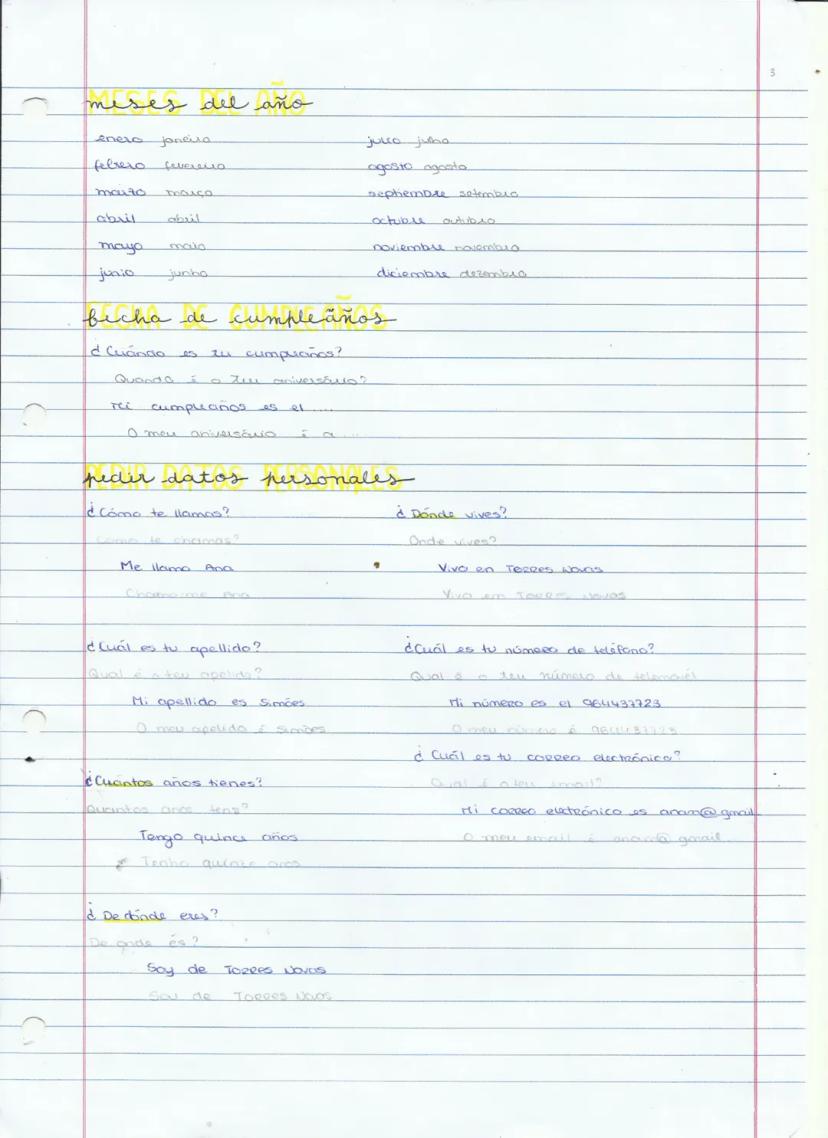 3
meses del año
enero janeiro
febrero fevereiro
marzo março
abril abril
mayo maio
junio junho
julio julho
agosto agosto
septiembre setembro
octubre outubro
noviembre novembro
diciembre dezembro
fecha de cumpleãños
¿Cuándo es tu cumpleaños?
Quando é o teu aniversário?
Mi cumpleaños es el ....
O meu aniversário é a ...
pedir datos personales
¿Cómo te llamas?
Como te chamas?
Me llamo Ana
Chamo-me Ana
¿Cuál es tu apellido?
Qual é o teu apelido?
Mi apellido es Simões
O meu apelido é Simões
¿Cuántos años tienes?
Quantos anos tens?
Tengo quince años
Tenho quinze anos
¿De dónde eres?
De onde és?
Soy de Torres Novas
Sou de Torres Novas
¿Dónde vives?
Onde vives?
Vivo en Torres Novas
Vivo em Torres Novas
¿Cuál es tu número de teléfono?
Qual é o teu número de telemóvel
Mi número es el 964437723
O meu número é 964437723
¿Cuál es tu correo electrónico?
Qual é o teu email?
Mi correo electrónico es anam@gmail
O meu email é anam@gmail